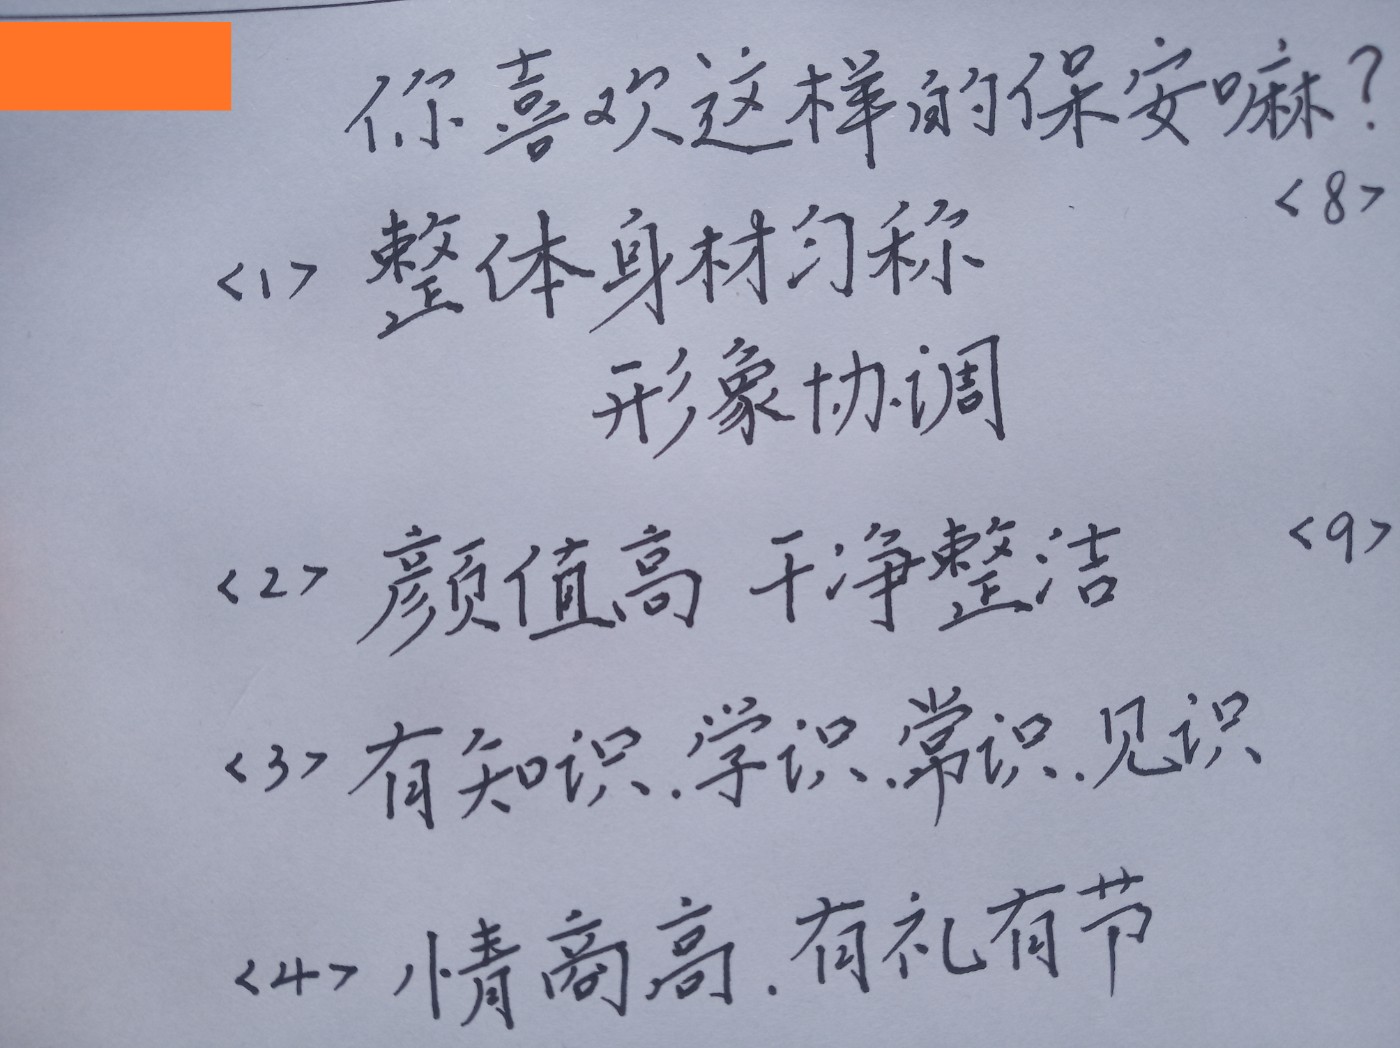 你喜欢这样的保安嘛?
<8>
<1> 整体身材匀称
形象协调
<2> 颜值高 干净整洁
<9>
<3> 有知识.学识.常识.见识
<4> 情商高.有礼有节